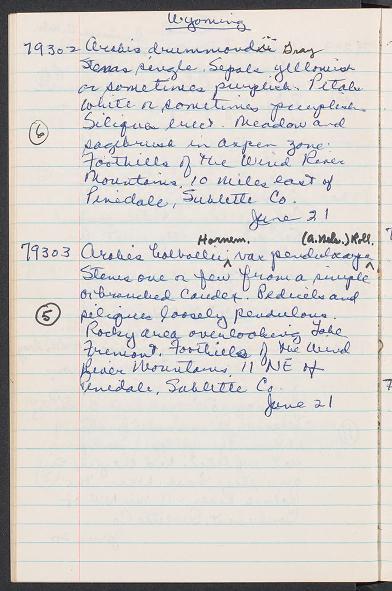 Wyoming
79302 Arabis drummondii Gray
Stems single. Sepals yellowish
or sometimes purplish. Petals
white or sometimes purplish.
Siliques erect. Meadow and
sagebrush in aspen zone.
6
Foothills of the Wind River
Mountains, 10 miles east of
Pinedale, Sublette Co.
June 21
Hornem. (A. Nels.) Roll.
79303 Arabis holboellii, var pendulocarpa
Stems one or few from a simple
or branched caudex. Pedicels and
5
siliques loosely pendulous.
Rocky area overlooking Lake
Fremont. Foothills of the Wind
River Mountains, 11 NE of
Pinedale, Sublette Co.
June 21